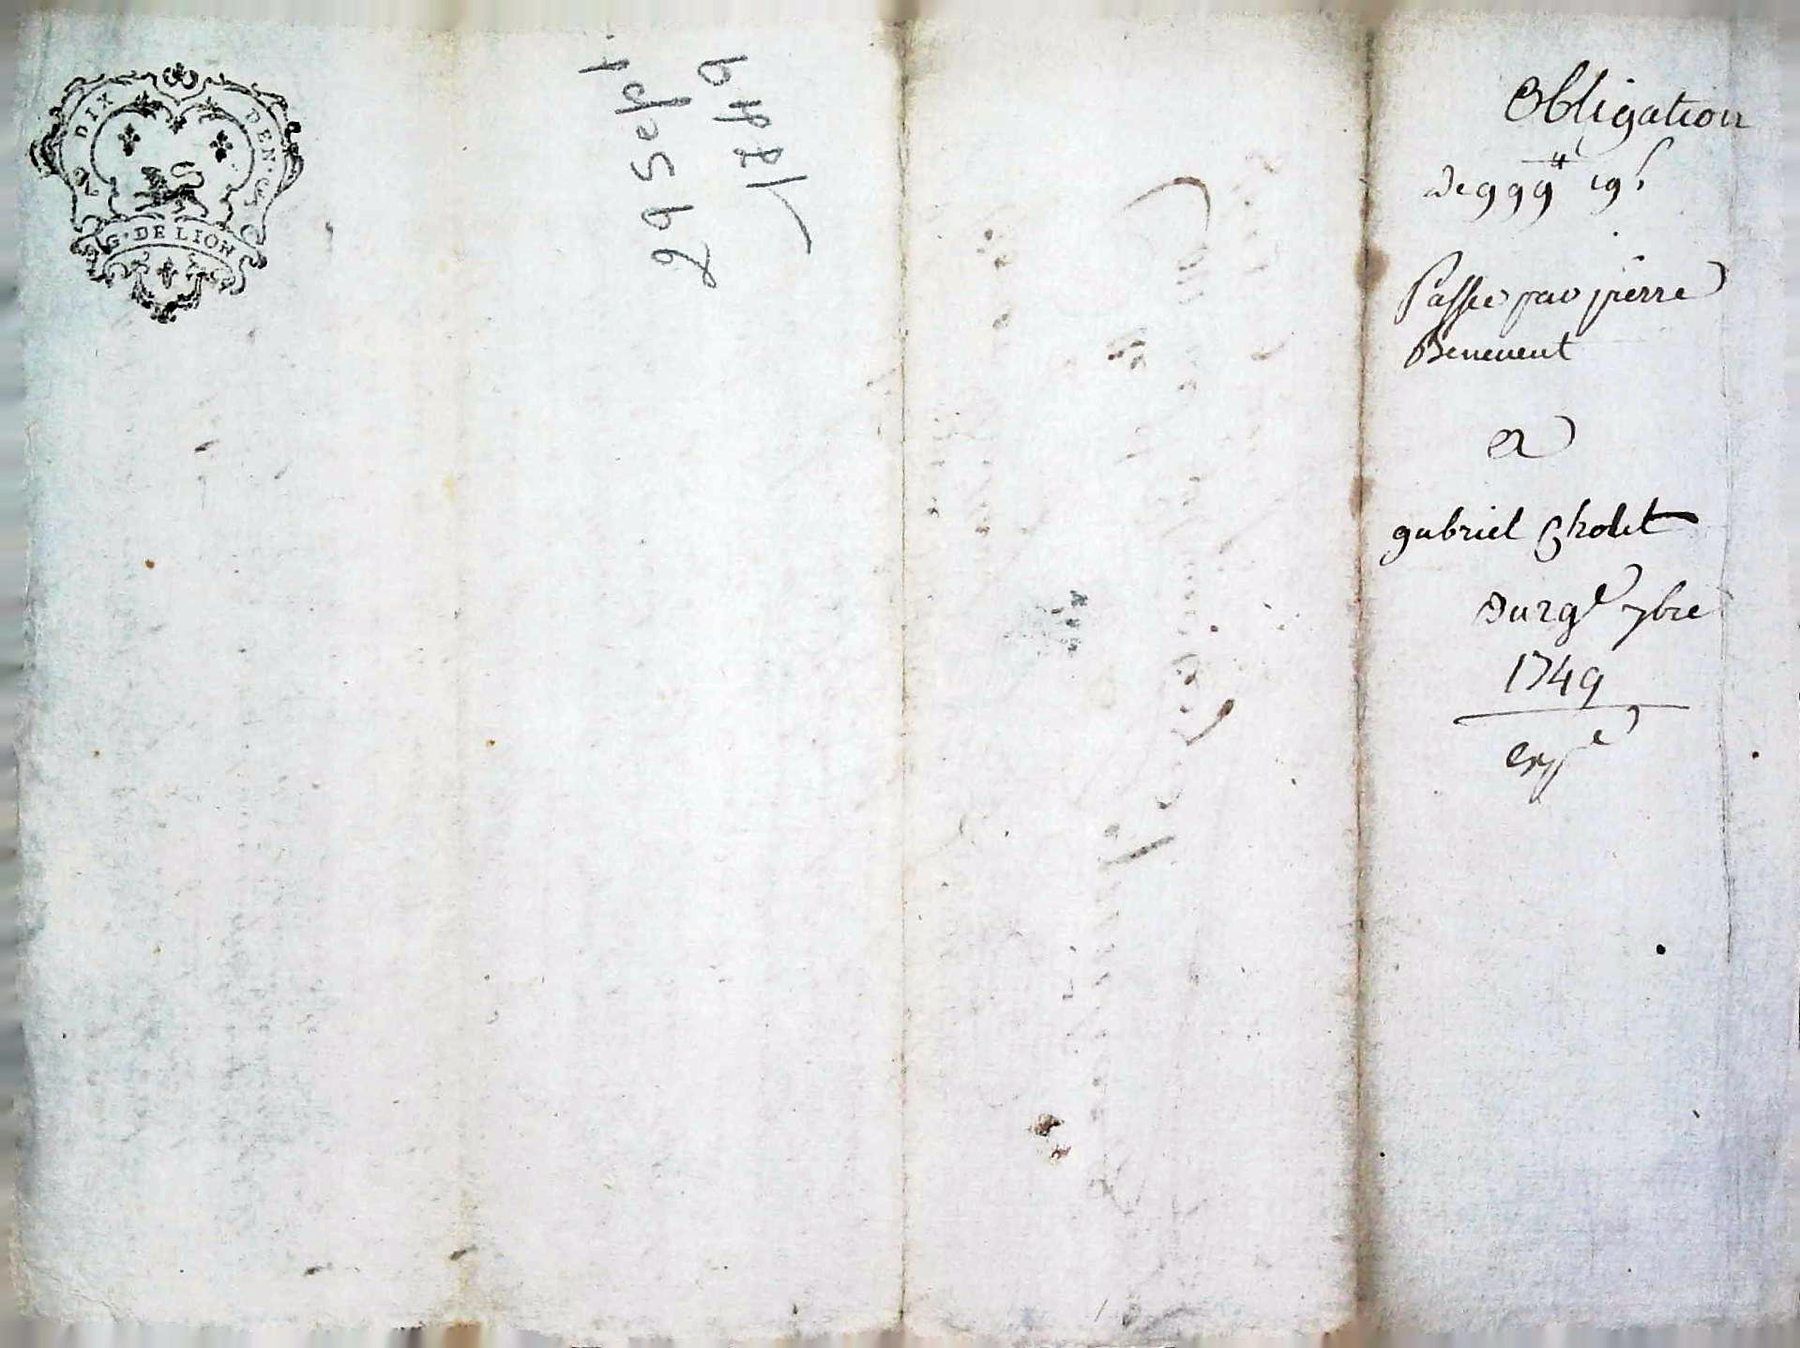 DIX DEN.
G. DE LION
1749
26 Sept
Obligation
De 999 ₶ 19 s
Passée par pierre
Benevent
A
gabriel Cholet
Du 29e 7bre
1749
expe